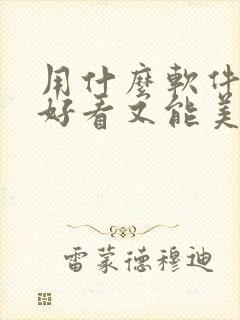 用什麼軟件
好看又能美
雷蒙德穆迪